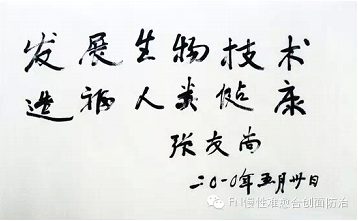 发展生物技术
造福人类健康
张友尚
二〇一〇年五月卅日
FM慢性难愈合创面防治